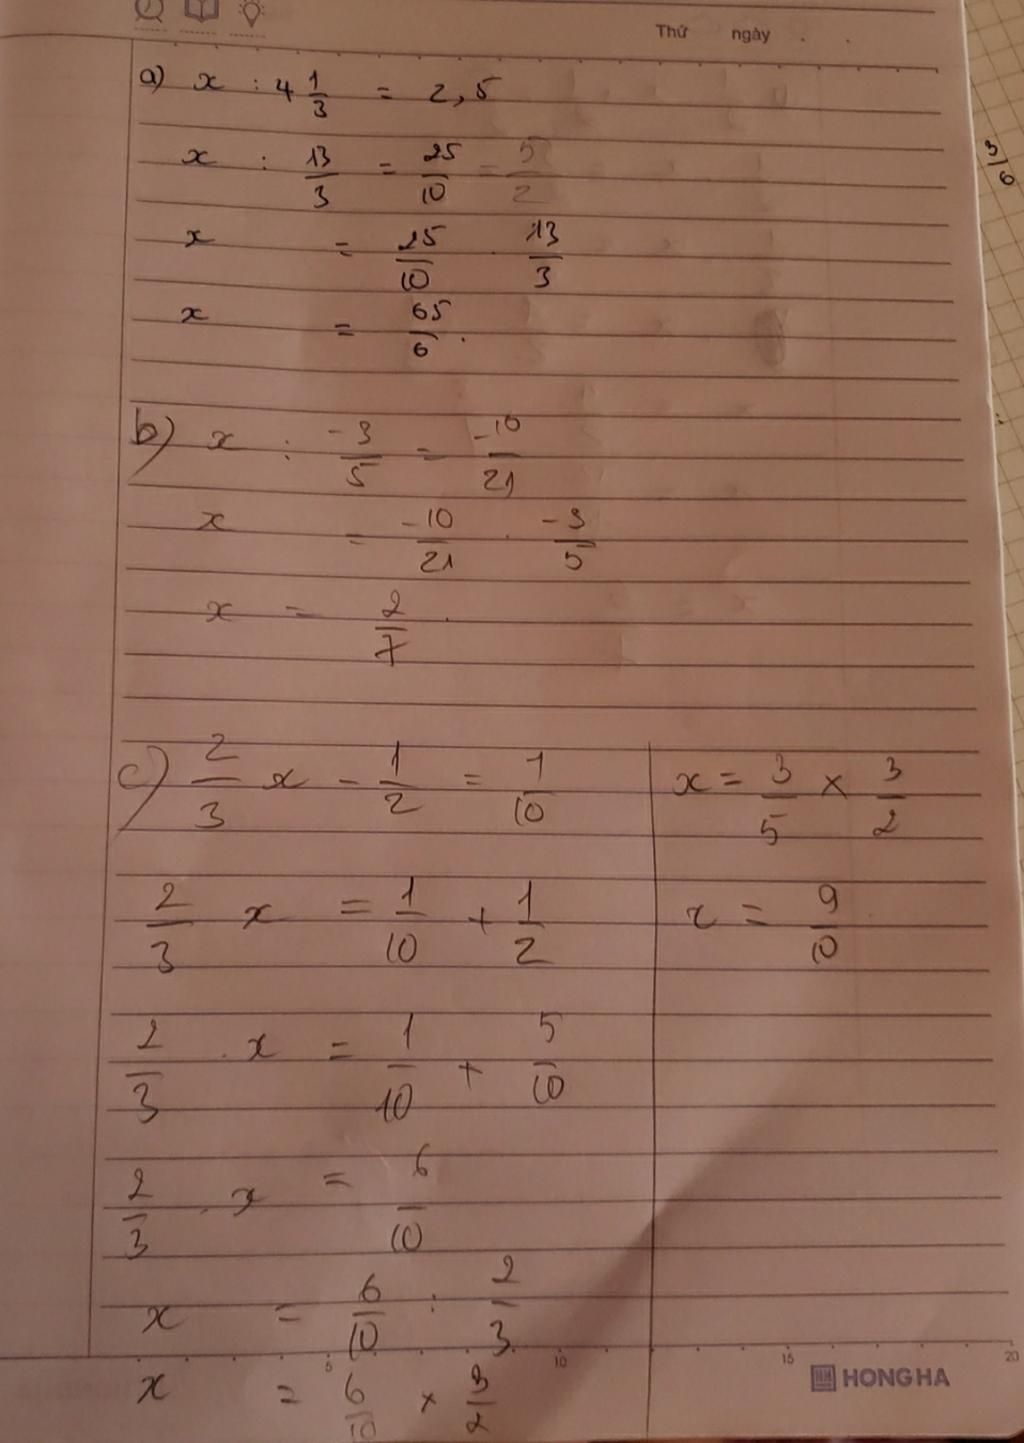 Thứ ngày . .
a) x : 4 1/3 = 2,5
x : 13/3 = 25/10 = 5/2
x = 25/10 . 13/3
x = 65/6 .
b) x : -3/5 = -10/21
x = -10/21 . -3/5
x = 2/7 .
c) 2/3 x - 1/2 = 1/10
2/3 x = 1/10 + 1/2
2/3 . x = 1/10 + 5/10
2/3 . x = 6/10
x = 6/10 : 2/3
x = 6/10 × 3/2
x = 3/5 × 3/2
x = 9/10
5 10 15 20
HONG HA
3/6